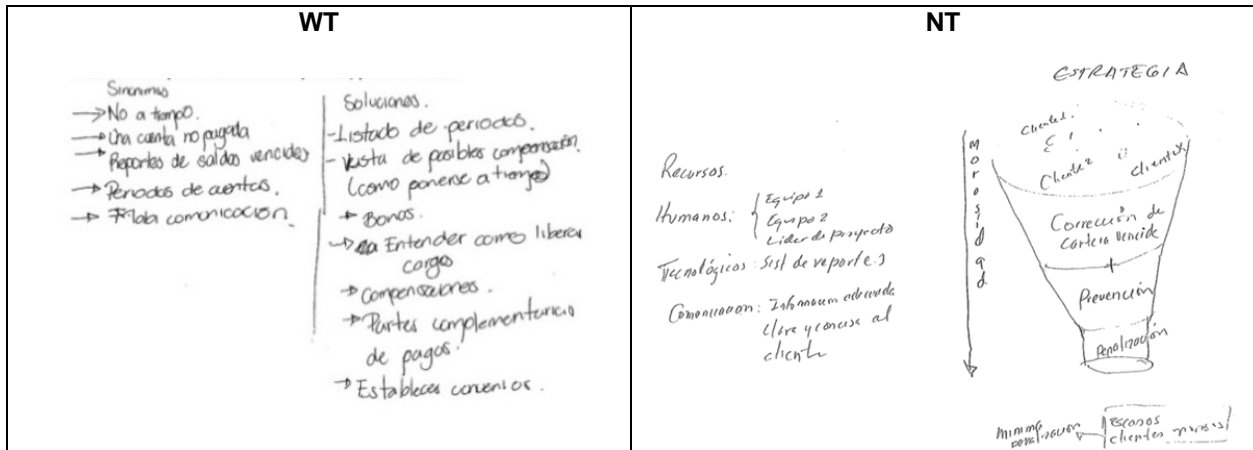 WT
Sinonimos
→ No a tiempo.
→ Una cuenta no pagada
→ Reportes de saldos vencidos
→ Periodos de cuentas.
→ Mala comunicación.
Soluciones.
- Listado de periodos.
- Vista de posibles compensación.
(como ponerse a tiempo)
→ Bonos.
→ Entender como liberar
cargos
→ Compensaciones.
→ Partes complementarias
de pagos.
→ Establecer convenios.
NT
ESTRATEGIA
Recursos.
Humanos: { Equipo 1
Equipo 2
Lider de proyecto
Tecnológicos: Sist de reportes
Comunicacion: Informacion adecuada
clara y concisa al
cliente
Morosidad
Cliente 1
Cliente 2
Cliente x
Corrección de
cartera vencida
+
Prevención
Penalización
minima
penalización
Escasos
clientes morosos